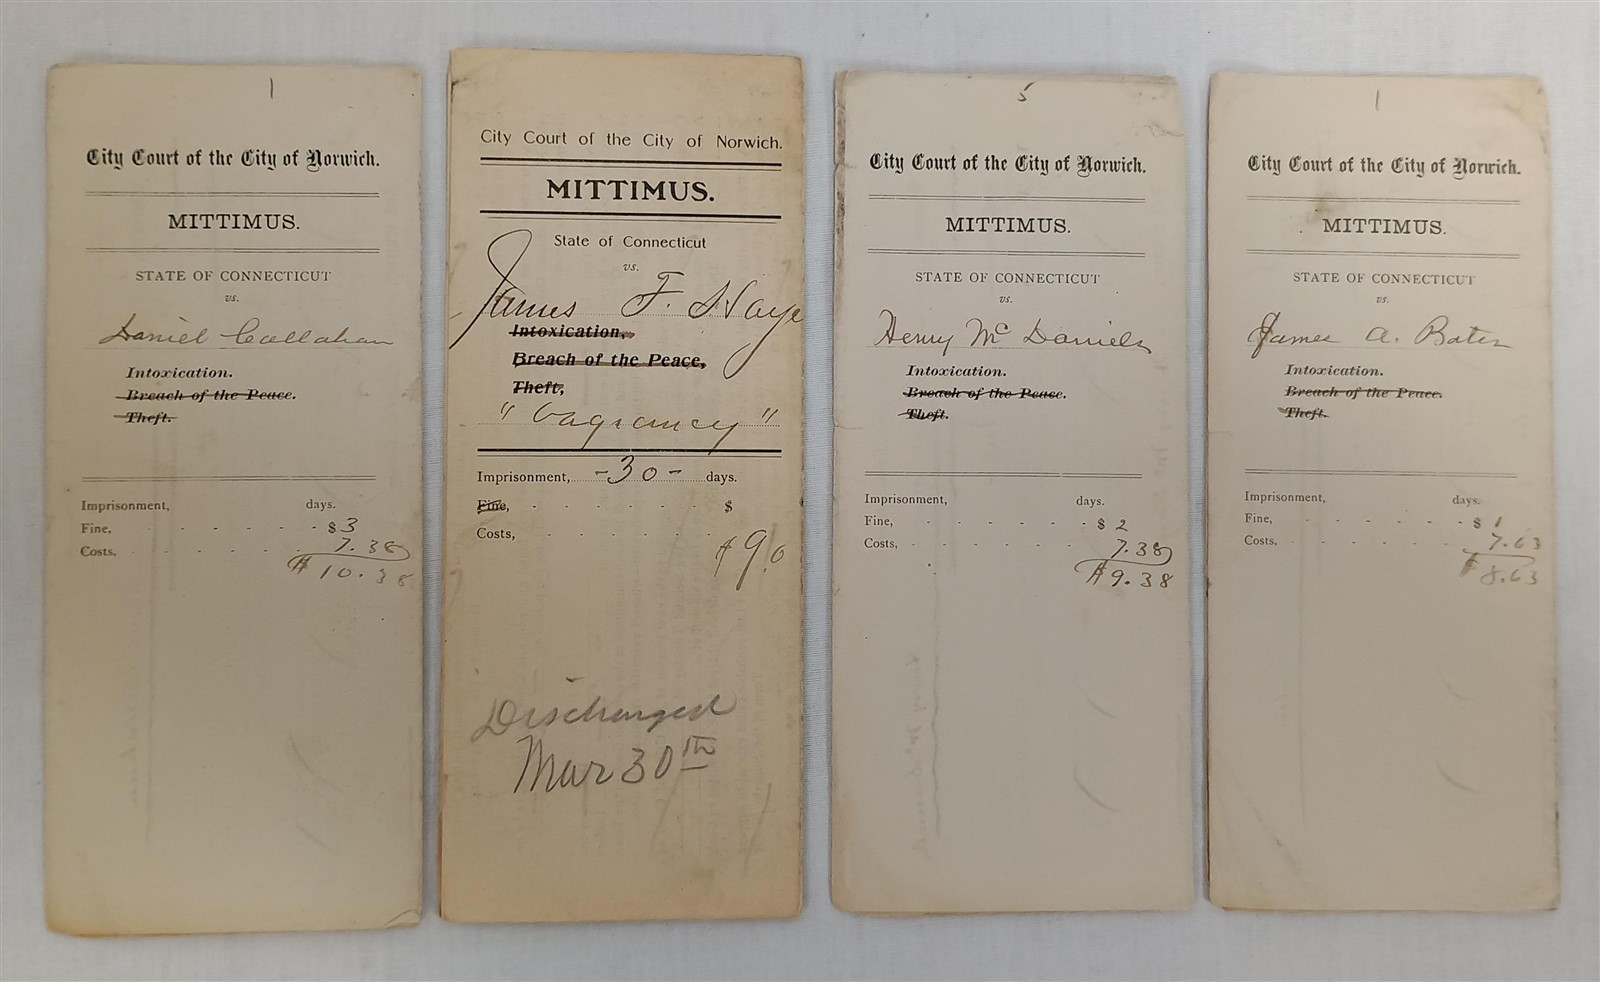 1
City Court of the City of Norwich.
MITTIMUS.
STATE OF CONNECTICUT
vs.
Daniel Callahan
Intoxication.
Breach of the Peace.
Theft.
Imprisonment, days.
Fine, $3
Costs, 7.38
$10.38
City Court of the City of Norwich.
MITTIMUS.
State of Connecticut
vs.
James F.
Intoxication,
Breach of the Peace,
Theft,
"Vagrancy"
Imprisonment, -30- days.
Fine, $
Costs,
Discharged
Mar 30th
5
City Court of the City of Norwich.
MITTIMUS.
STATE OF CONNECTICUT
vs.
Henry McDaniels
Intoxication.
Breach of the Peace.
Theft.
Imprisonment, days.
Fine, $2
Costs, 7.38
$9.38
1
City Court of the City of Norwich.
MITTIMUS.
STATE OF CONNECTICUT
vs.
James A. Bates
Intoxication.
Breach of the Peace.
Theft.
Imprisonment, days.
Fine, $1
Costs, 7.63
$8.63